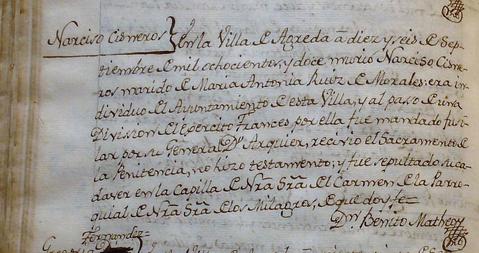 Narciso Cisneros En la Villa de Agreda a diez y seis de Sep-
tiembre de mil ochocientos y doce murio Narciso Cisne-
ros marido de Maria Antonia Ruiz de Morales: era in-
dividuo del Ayuntamiento de esta Villa, y al paso de una
Division del Egercito Frances, por ella fue mandado fusi-
lar por su General Dn. Arquier, recivio el Sacramento de
la Penitencia, no hizo testamento; y fue sepultado su ca-
daver en la Capilla de Nra. Sra. del Carmen de la Parro-
quial de Nra. Sra. de los Milagros, de que doy fe=
Dn. Benito Matheo
Fernandez